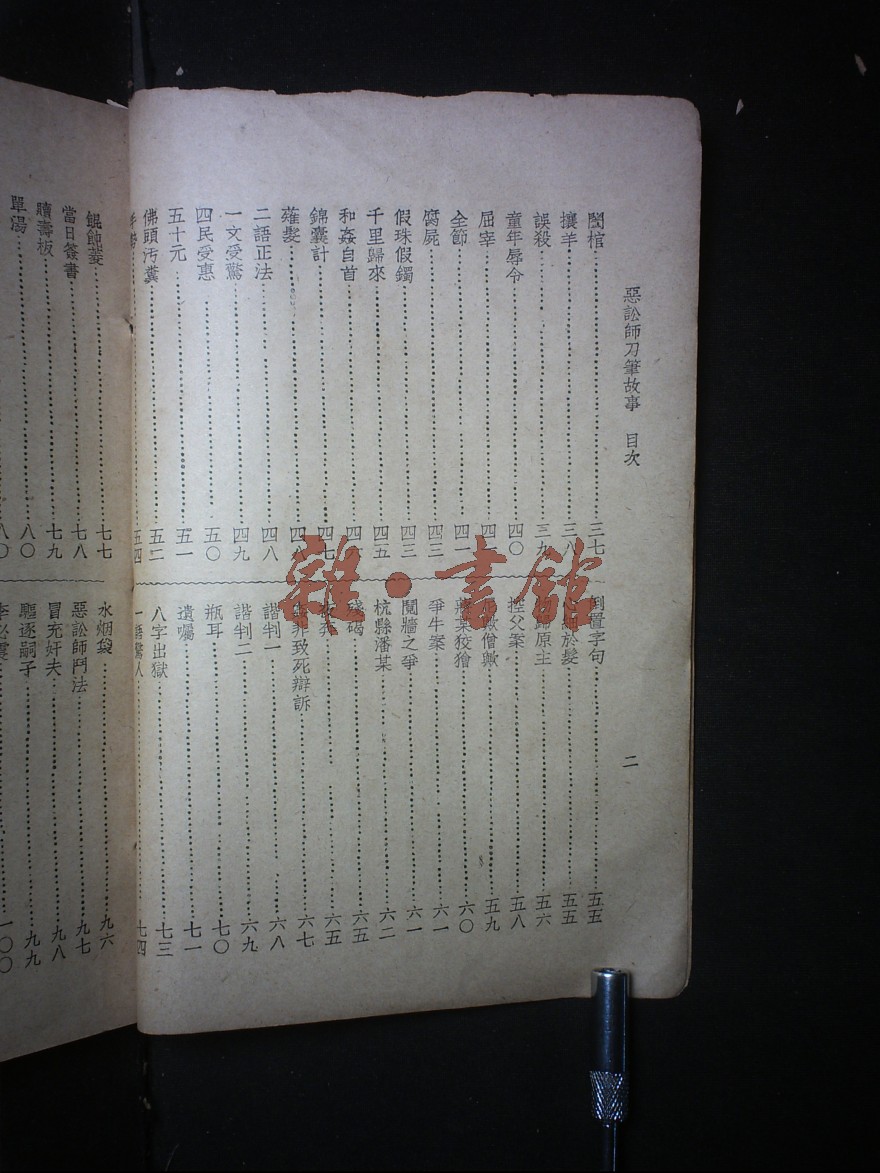 惡訟師刀筆故事 目次
二
閨棺 三七
攘羊 三八
誤殺 三九
童年辱令 四〇
屈宰 四
全節 四一
腐屍 四三
假珠假鐲 四三
千里歸來 四五
和姦自首 四六
錦囊計 四七
薙髮 四八
二語正法 四八
一文受驚 四九
四民受惠 五〇
五十元 五一
佛頭汚糞 五二
五四
倒置字句 五五
於髮 五五
歸原主 五六
控父案 五八
僧歟 五九
某狡獪 六〇
爭牛案 六一
鬩牆之爭 六一
杭縣潘某 六二
殘碣 六五
六五
非致死辯訴 六七
諧判一 六八
諧判二 六九
瓶耳 七〇
遺囑 七一
八字出獄 七三
一語驚人 七四
餛飩菱 七七
當日簽書 七八
贖壽板 七九
單湯 八〇
八〇
水烟袋 九六
惡訟師鬥法 九七
冒充奸夫 九八
驅逐嗣子 九九
李必震 一〇〇
雜·書館